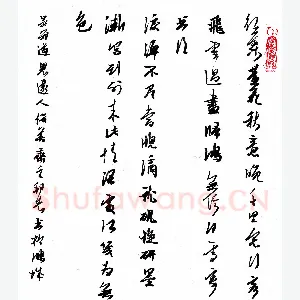 红叶黄花秋意晚千里念行客
飞云过尽归鸿无信何处寄
书得
泪弹不尽当窗滴就砚旋研墨
渐写到别来此情深处红笺为无
色
晏几道思远人
Shufawang.CN